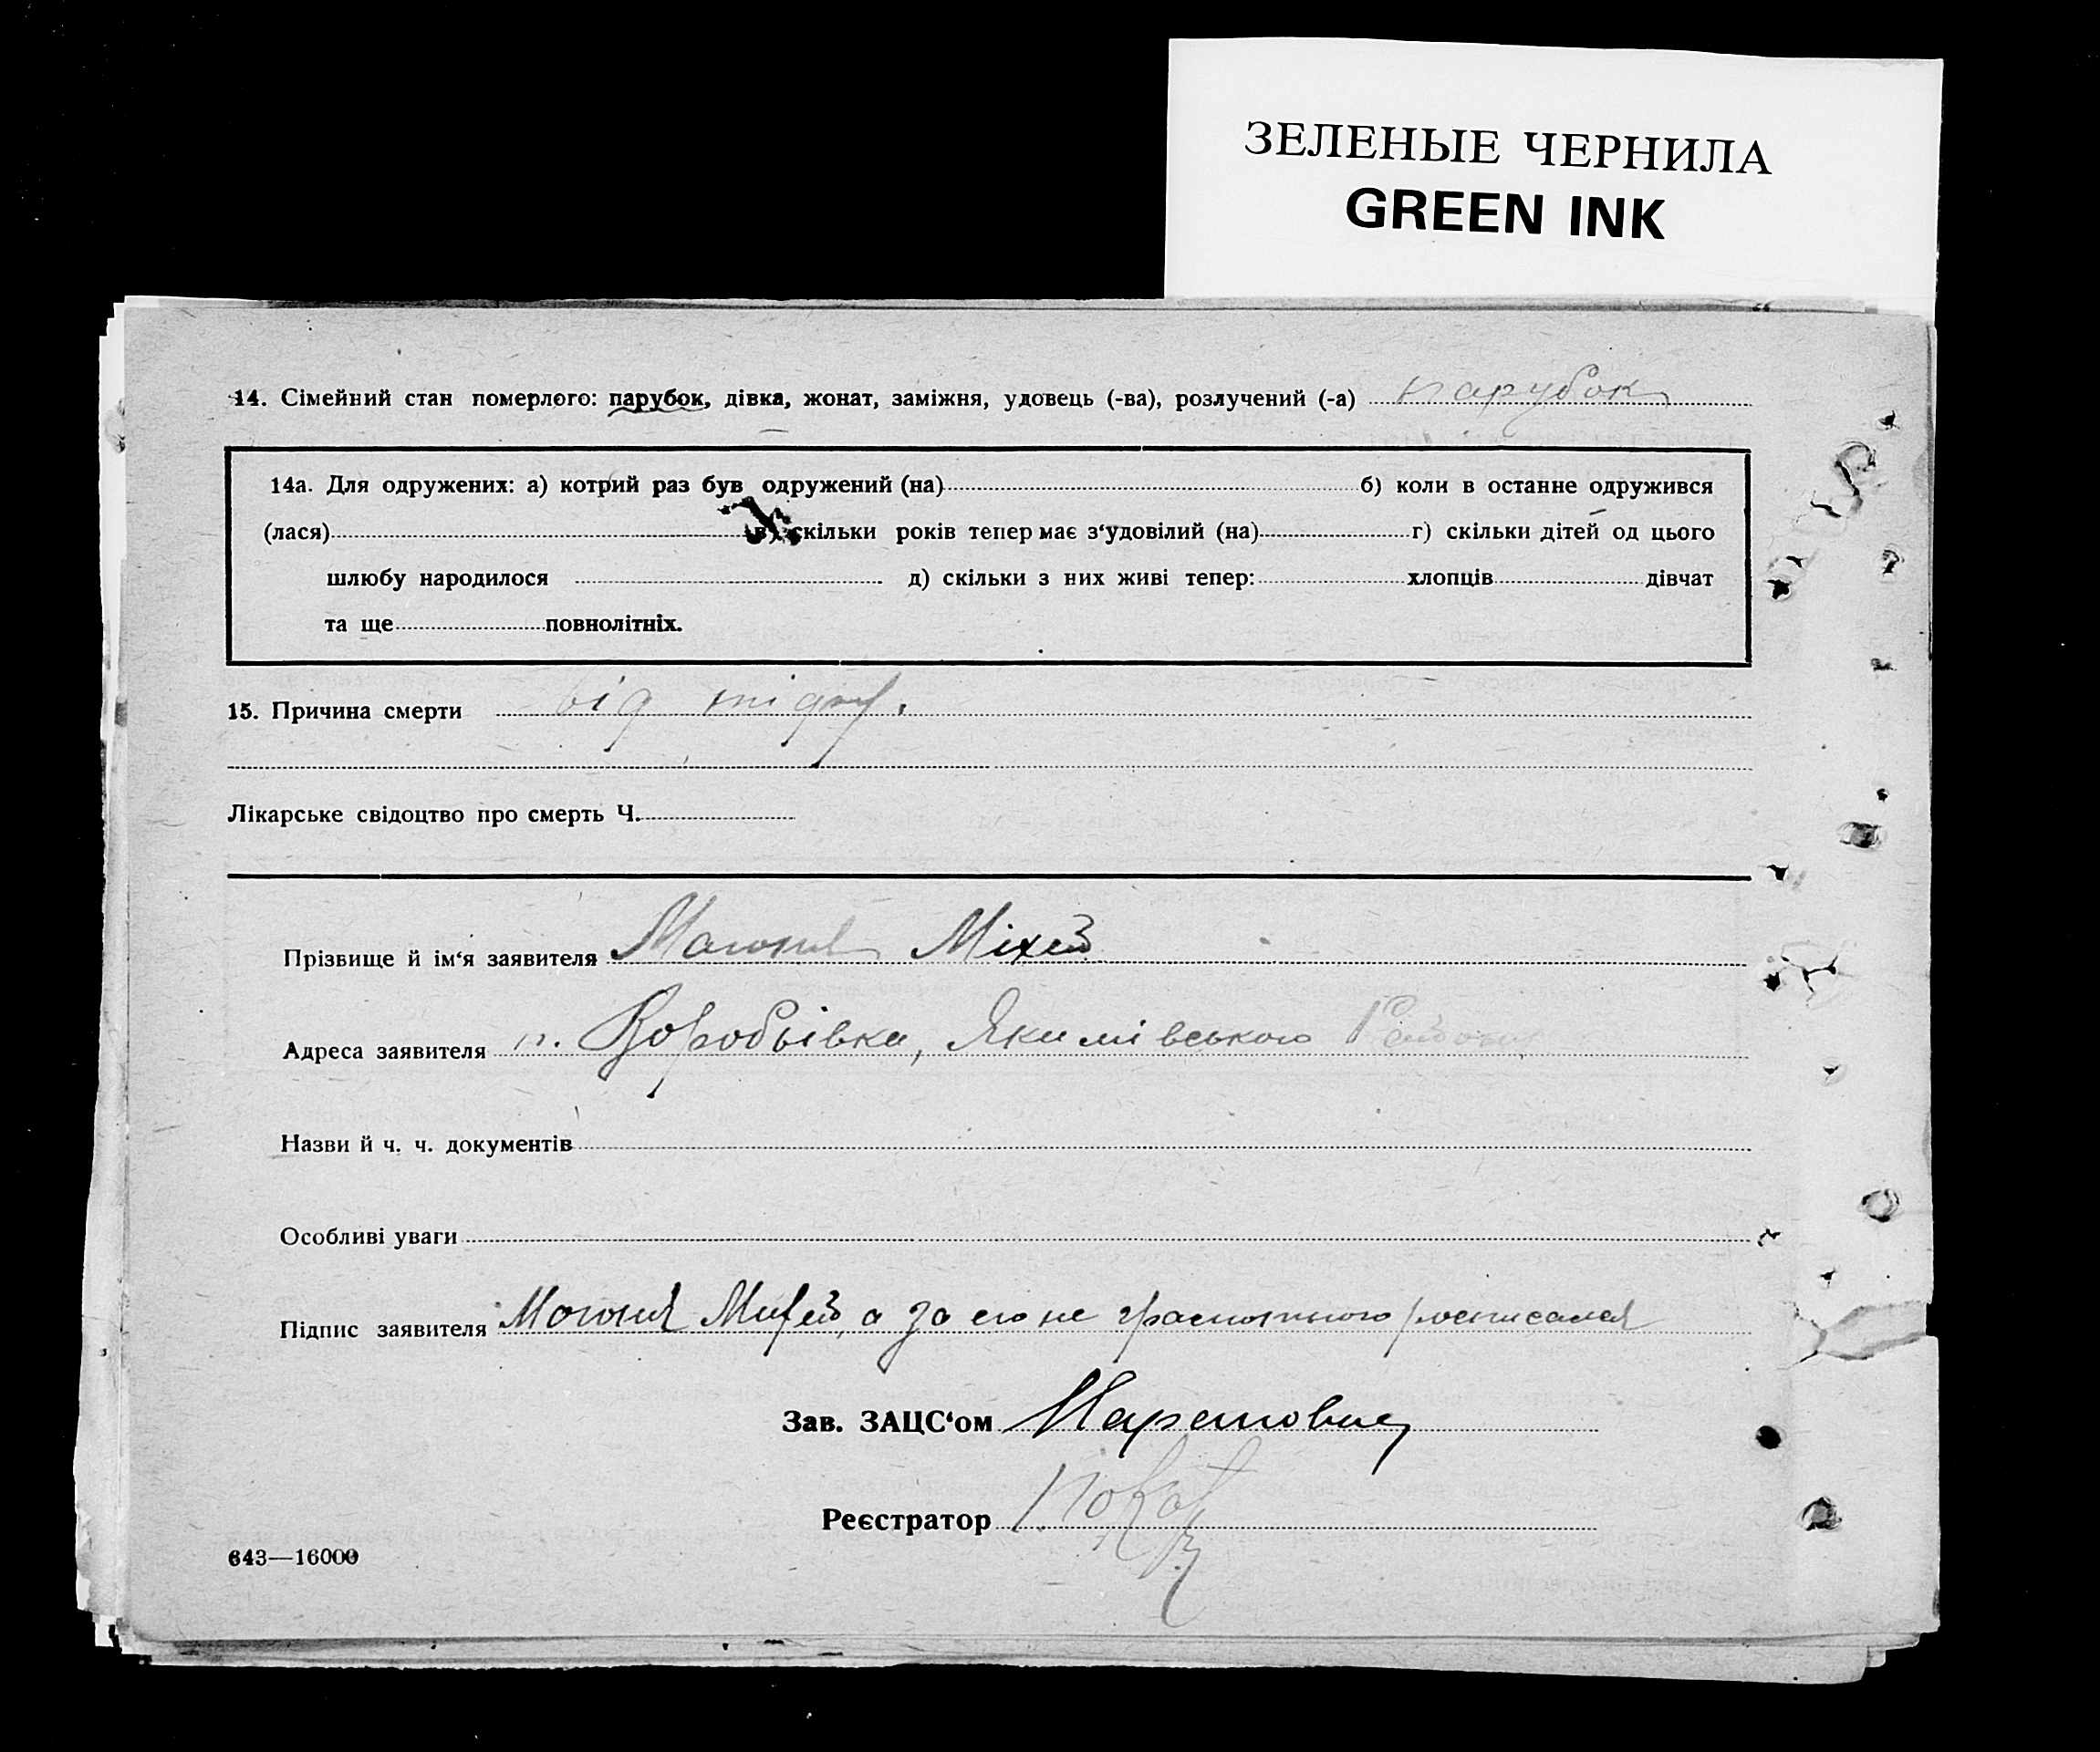 ЗЕЛЕНЫЕ ЧЕРНИЛА
GREEN INK
14. Сімейний стан померлого: парубок, дівка, жонат, заміжня, удовець (-ва), розлучений (-а) парубок
14а. Для одружених: а) котрий раз був одружений (на) б) коли в останне одружився
(лася) в) скільки років тепер має з‘удовілий (на) г) скільки дітей од цього
шлюбу народилося д) скільки з них живі тепер: хлопців дівчат
та ще повнолітніх.
15. Причина смерти від
Лікарське свідоцтво про смерть Ч.
Прізвище й ім‘я заявителя Міхей
Адреса заявителя п. Воробьівка, Якимівського
Назви й ч. ч. документів
Особливі уваги
Підпис заявителя Михей, а за его не грамотного росписался
Зав. ЗАЦС‘ом
Реєстратор
643—16000